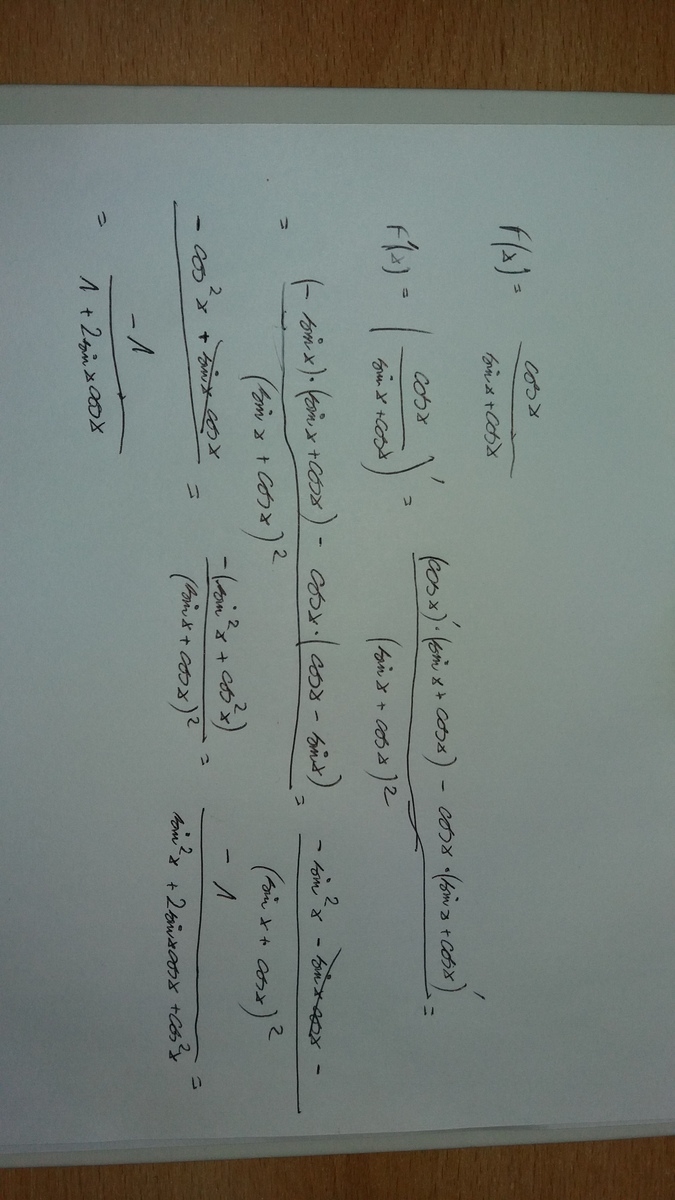 F(x) = cosx / (sinx + cosx)
F'(x) = (cosx / (sinx + cosx))' = ((cosx)'·(sinx + cosx) - cosx·(sinx + cosx)') / (sinx + cosx)² =
= ((-sinx)·(sinx + cosx) - cosx·(cosx - sinx)) / (sinx + cosx)² = (-sin²x - sinx cosx -) / (sinx + cosx)²
- cos²x + sinx cosx = -(sin²x + cos²x) / (sinx + cosx)² = -1 / (sin²x + 2sinxcosx + cos²x) =
= -1 / (1 + 2sinxcosx)